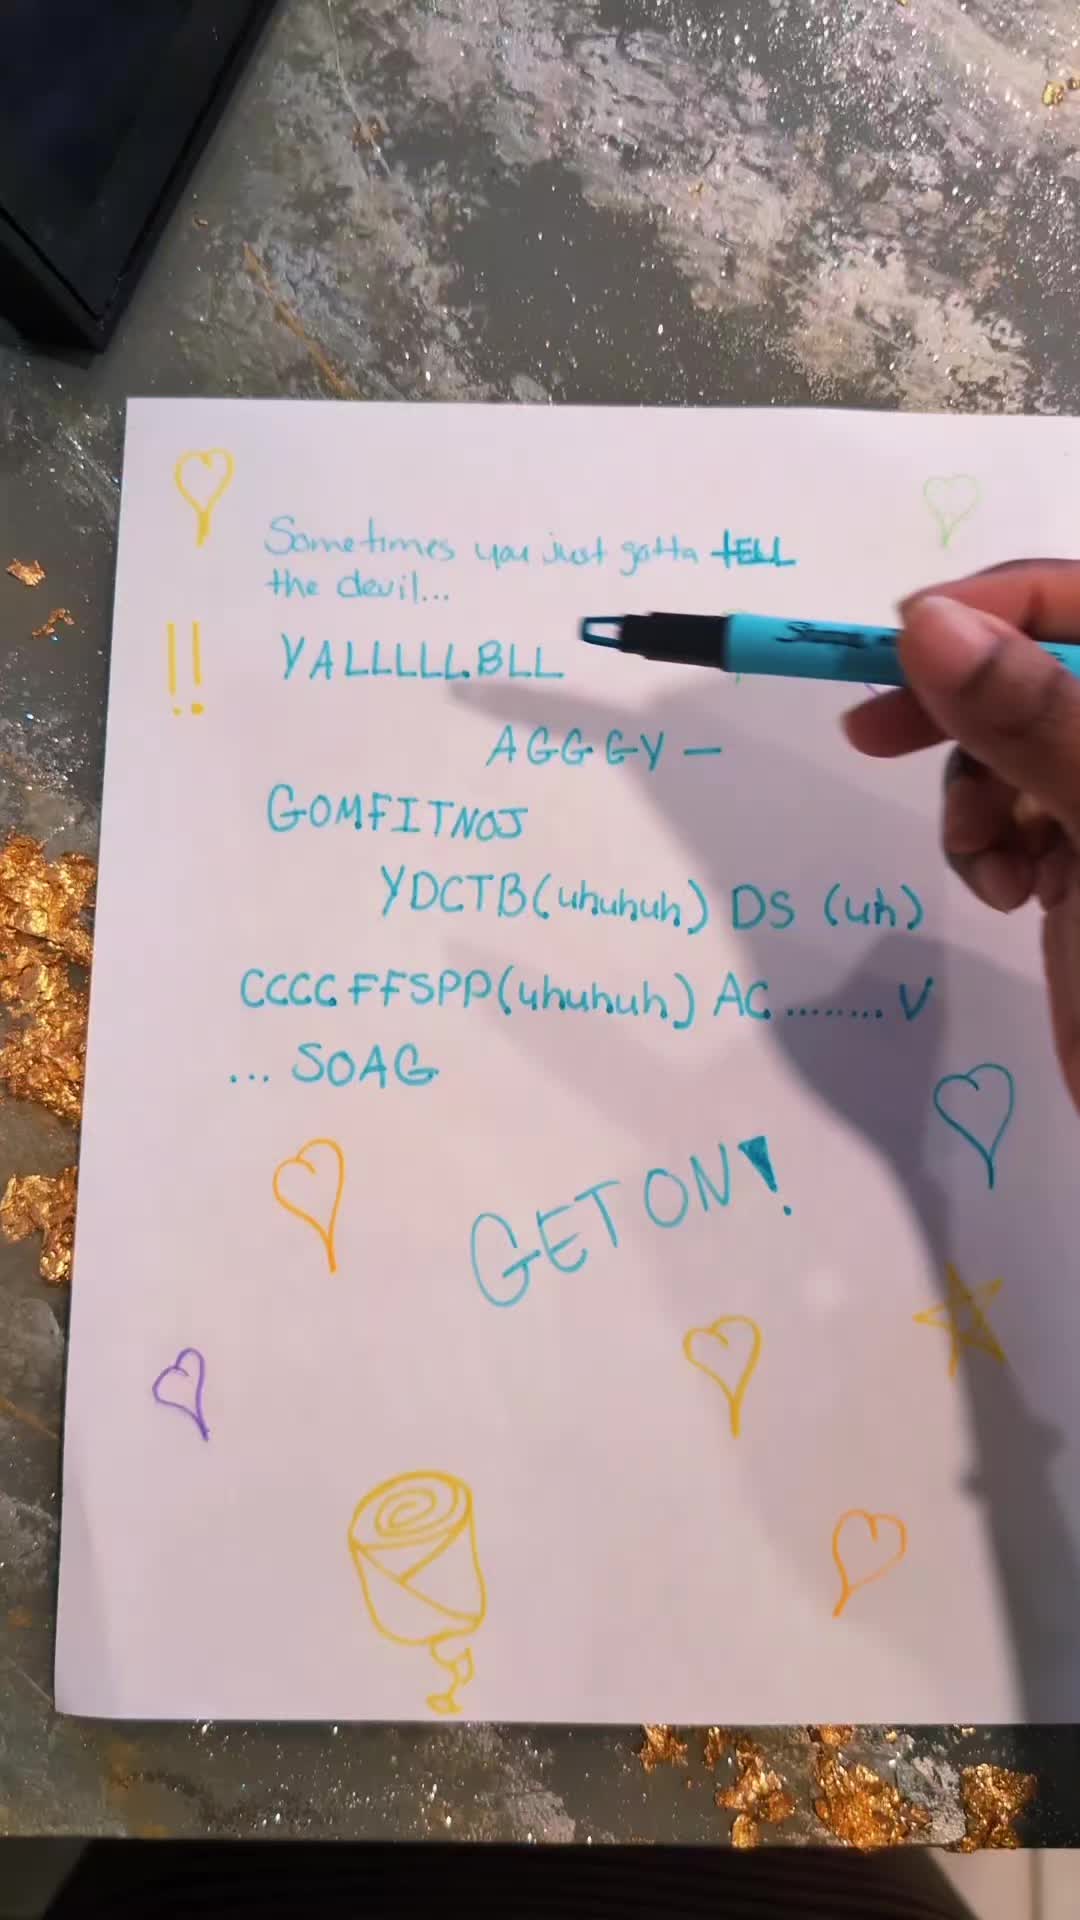 Sometimes you just gotta tELL
the devil...
!! YALLLLL.BLL
AGGGY —
GOMFITNOJ
YDCTB(uhuhuh) DS (uh)
CCCCFFSPP(uhuhuh) AC ........ V
... SOAG
GET ON!